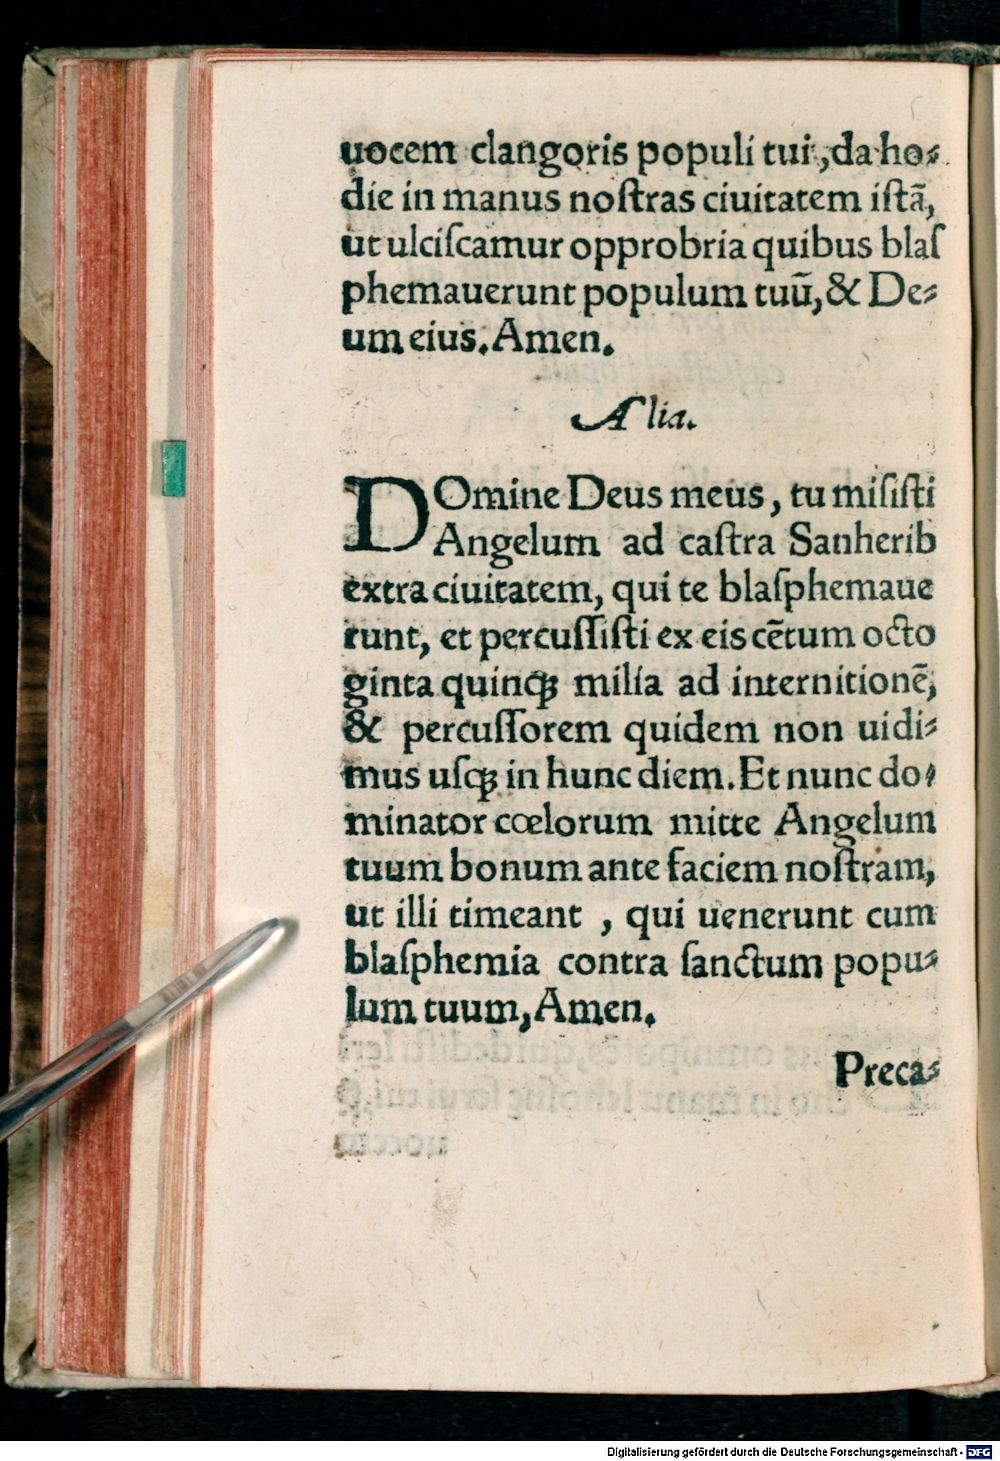 uocem clangoris populi tui, da ho⸗
die in manus noſtras ciuitatem iſtã,
ut ulciſcamur opprobria quibus blaſ
phemauerunt populum tuũ, & De⸗
um eius. Amen.
Alia.
DOmine Deus meus, tu miſiſti
Angelum ad caſtra Sanherib
extra ciuitatem, qui te blaſphemaue
runt, et percuſſiſti ex eis cẽtum octo
ginta quinqꝫ milia ad internitionẽ,
& percuſſorem quidem non uidi⸗
mus uſqꝫ in hunc diem. Et nunc do⸗
minator cœlorum mitte Angelum
tuum bonum ante faciem noſtram,
ut illi timeant , qui uenerunt cum
blaſphemia contra ſanctum popu⸗
lum tuum, Amen.
Preca⸗
Digitalisierung gefördert durch die Deutsche Forschungsgemeinschaft - DFG